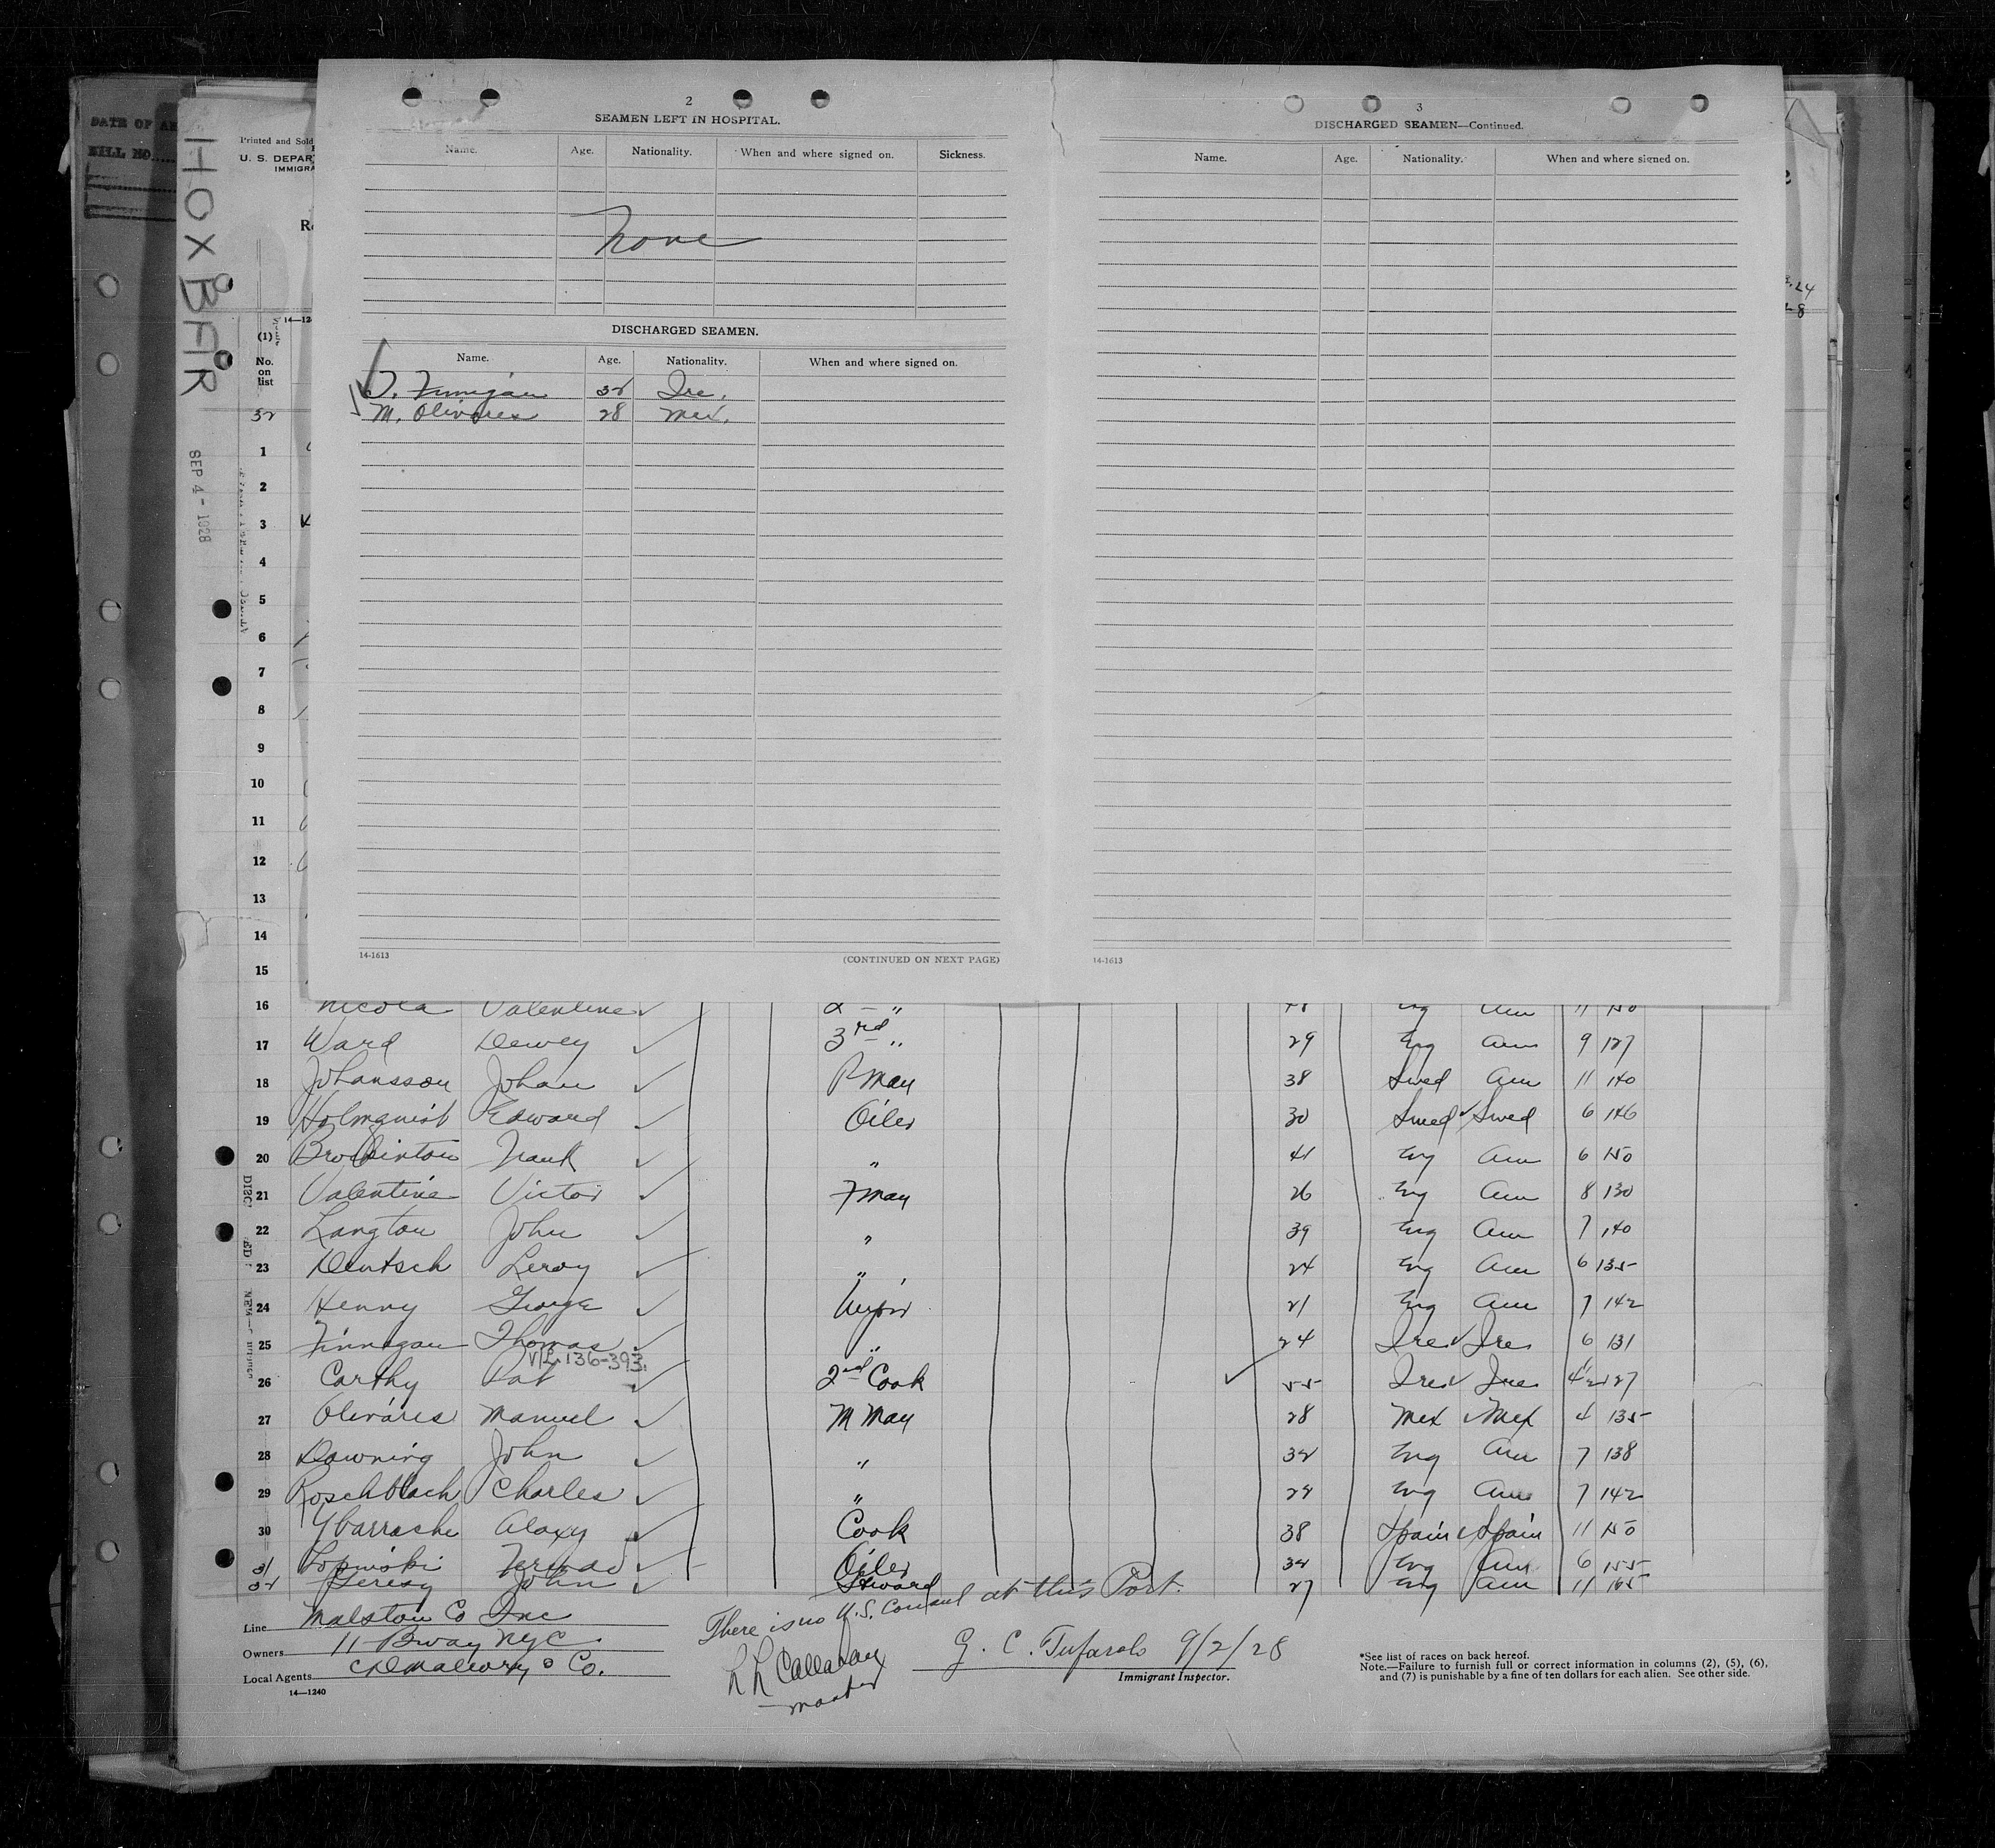 DATE OF
BILL NO.
HOXBAR
SEP 4 - 1928
Printed and Sold
U. S. DEPAR
IMMIGRA
14—12
(1)
No.
on
list
32
2
SEAMEN LEFT IN HOSPITAL.
Name. Age. Nationality. When and where signed on. Sickness.
None
DISCHARGED SEAMEN.
Name. Age. Nationality. When and where signed on.
T. Finnigan 32 Ire.
M. Olivares 28 Mex.
14-1613
(CONTINUED ON NEXT PAGE)
3
DISCHARGED SEAMEN—Continued.
Name. Age. Nationality. When and where signed on.
14-1613
1
2
3
4
5
6
7
8
9
10
11
12
13
14
15
16 Nicola Valentine 2 " Eng Am 11 150
17 Ward Dewey 3rd " 29 Eng Am 9 127
18 Johansson Johan P Man 38 Swed Am 11 140
19 Holmquist Edward Oiler 30 Swed Swed 6 146
20 Frank " 41 Eng Am 6 150
21 Valentine Victor F Man 26 Eng Am 8 130
22 Langton John " 39 Eng Am 7 140
23 Deutsch Leroy " 24 Eng Am 6 135
24 Henny George Wiper 21 Eng Am 7 142
25 Finnegan Thomas " 24 Ire Ire 6 131
V/L 136-393.
26 Carthy Pat 2nd Cook 55 Ire Ire 4 1/2 127
27 Olivares Manuel M Man 28 Mex Mex 4 135
28 Downing John " 32 Eng Am 7 138
29 Charles " 22 Eng Am 7 142
30 Cook 38 Spain Spain 11 150
31 Oiler 32 Eng Am 6 155
32 John Steward 27 Eng Am 11 165
Line Malston Co Inc
Owners 11 Bway NYC
Local Agents CD Mallory & Co.
14—1240
There is no U.S. Consul at this Port.
Callahan
Master
G. C. Tufarolo 9/2/28
Immigrant Inspector.
*See list of races on back hereof.
Note.—Failure to furnish full or correct information in columns (2), (5), (6),
and (7) is punishable by a fine of ten dollars for each alien. See other side.